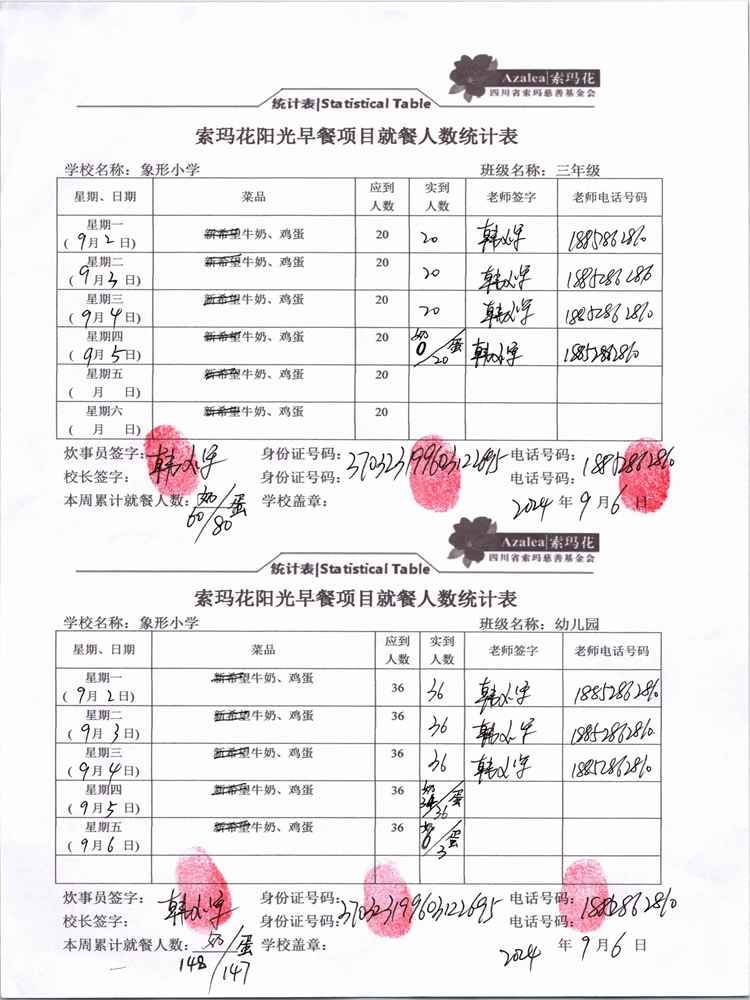 Azalea|索玛花
四川省索玛慈善基金会
统计表|Statistical Table
索玛花阳光早餐项目就餐人数统计表
学校名称：象形小学 班级名称：三年级
星期、日期 菜品 应到人数 实到人数 老师签字 老师电话号码
星期一 (9月2日) 新希望牛奶、鸡蛋 20 20 韩 18852862810
星期二 (9月3日) 新希望牛奶、鸡蛋 20 20 韩 18852862810
星期三 (9月4日) 新希望牛奶、鸡蛋 20 20 韩 18852862810
星期四 (9月5日) 新希望牛奶、鸡蛋 20 奶0/20蛋 韩 18852862810
星期五 ( 月 日) 新希望牛奶、鸡蛋 20
星期六 ( 月 日) 新希望牛奶、鸡蛋 20
炊事员签字：韩 身份证号码：370323199603122695 电话号码：18852862810
校长签字： 身份证号码： 电话号码：
本周累计就餐人数：奶60/蛋80 学校盖章： 2024年9月6日
Azalea|索玛花
四川省索玛慈善基金会
统计表|Statistical Table
索玛花阳光早餐项目就餐人数统计表
学校名称：象形小学 班级名称：幼儿园
星期、日期 菜品 应到人数 实到人数 老师签字 老师电话号码
星期一 (9月2日) 新希望牛奶、鸡蛋 36 36 韩 18852862810
星期二 (9月3日) 新希望牛奶、鸡蛋 36 36 韩 18852862810
星期三 (9月4日) 新希望牛奶、鸡蛋 36 36 韩 18852862810
星期四 (9月5日) 新希望牛奶、鸡蛋 36 奶/36蛋
星期五 (9月6日) 新希望牛奶、鸡蛋 36 /3蛋
炊事员签字：韩 身份证号码：370323199603122695 电话号码：18852862810
校长签字： 身份证号码： 电话号码：
本周累计就餐人数：奶148/蛋147 学校盖章： 2024年9月6日